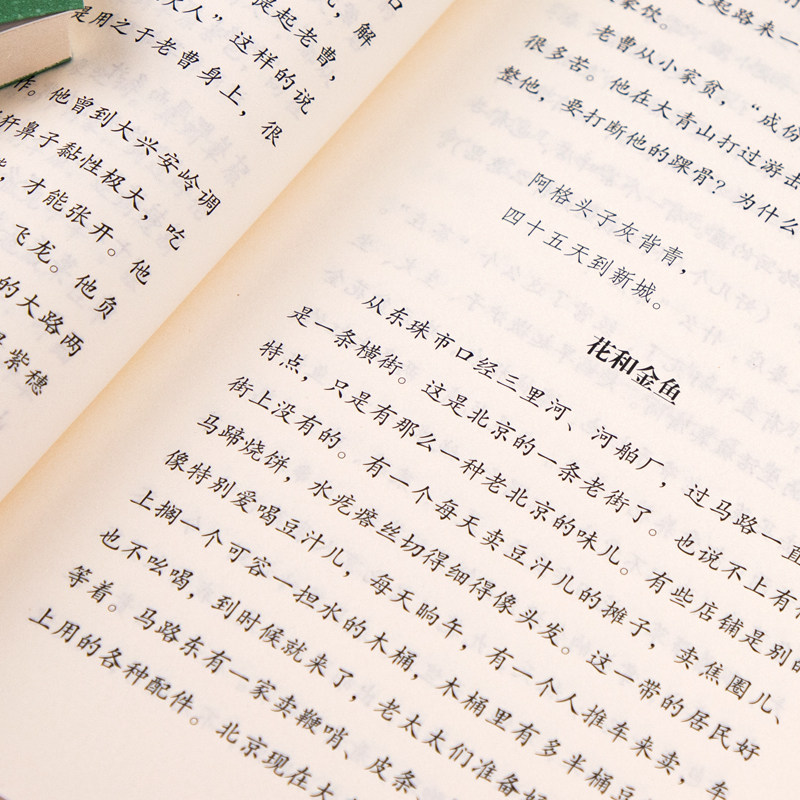 凡，解
提起老曹，
人”这样的说
是用之于老曹身上，很
作。他曾到大兴安岭调
犴鼻子黏性极大，吃
能，才能张开。他
飞龙。他负
的大路两
是紫穗
起路来一
家饮。
老曹从小家贫，“成份
很多苦。他在大青山打过游击
整他，要打断他的踝骨？为什么
阿格头子灰背青，
四十五天到新城。
花和金鱼
从东珠市口经三里河、河舶厂，过马路一直
是一条横街。这是北京的一条老街了。也说不上有什
特点，只是有那么一种老北京的味儿。有些店铺是别的
街上没有的。有一个每天卖豆汁儿的摊子，卖焦圈儿、
马蹄烧饼，水疙瘩丝切得细得像头发。这一带的居民好
像特别爱喝豆汁儿，每天晌午，有一个人推车来卖，车
上搁一个可容一担水的木桶，木桶里有多半桶豆
也不吆喝，到时候就来了，老太太们准备好
等着。马路东有一家卖鞭哨、皮条、
上用的各种配件。北京现在大